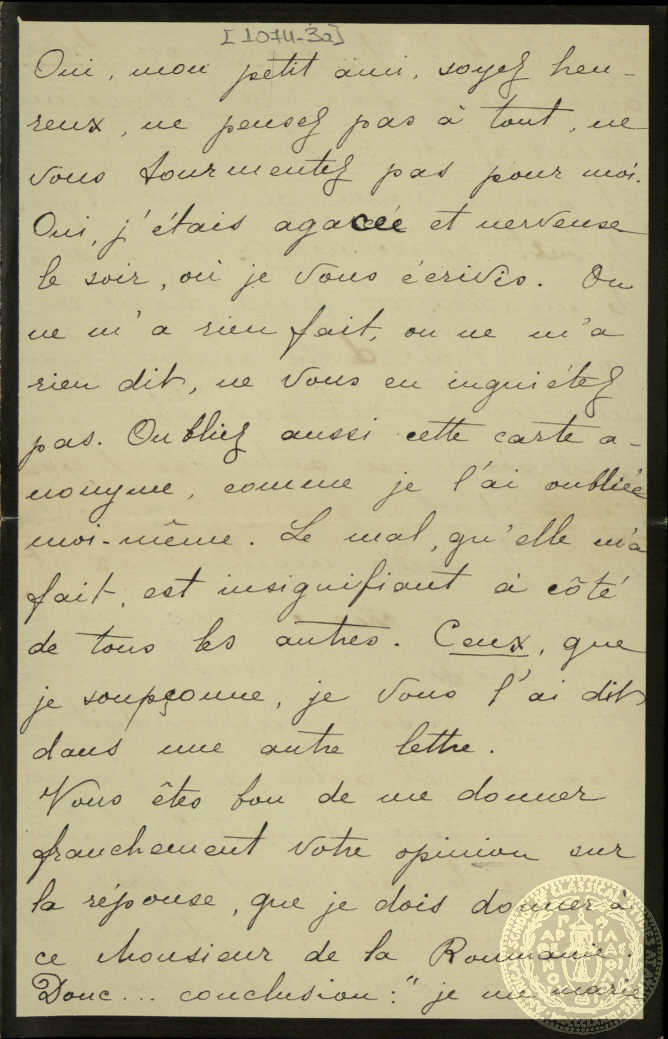 [1074-32]
Oui, mon petit ami, soyez heu-
reux, ne pensez pas à tout, ne
vous tourmentez pas pour moi.
Oui, j'étais agacée et nerveuse
le soir, où je vous écrivis. On
ne m'a rien fait, on ne m'a
rien dit, ne vous en inquiétez
pas. Oubliez aussi cette carte a-
nonyme, comme je l'ai oubliée
moi-même. Le mal, qu'elle m'a
fait, est insignifiant à côté
de tous les autres. Ceux, que
je soupçonne, je vous l'ai dit
dans une autre lettre.
Vous êtes bon de me donner
franchement votre opinion sur
la réponse, que je dois donner à
ce Monsieur de la Roumanie.
Donc... conclusion: "je me marie